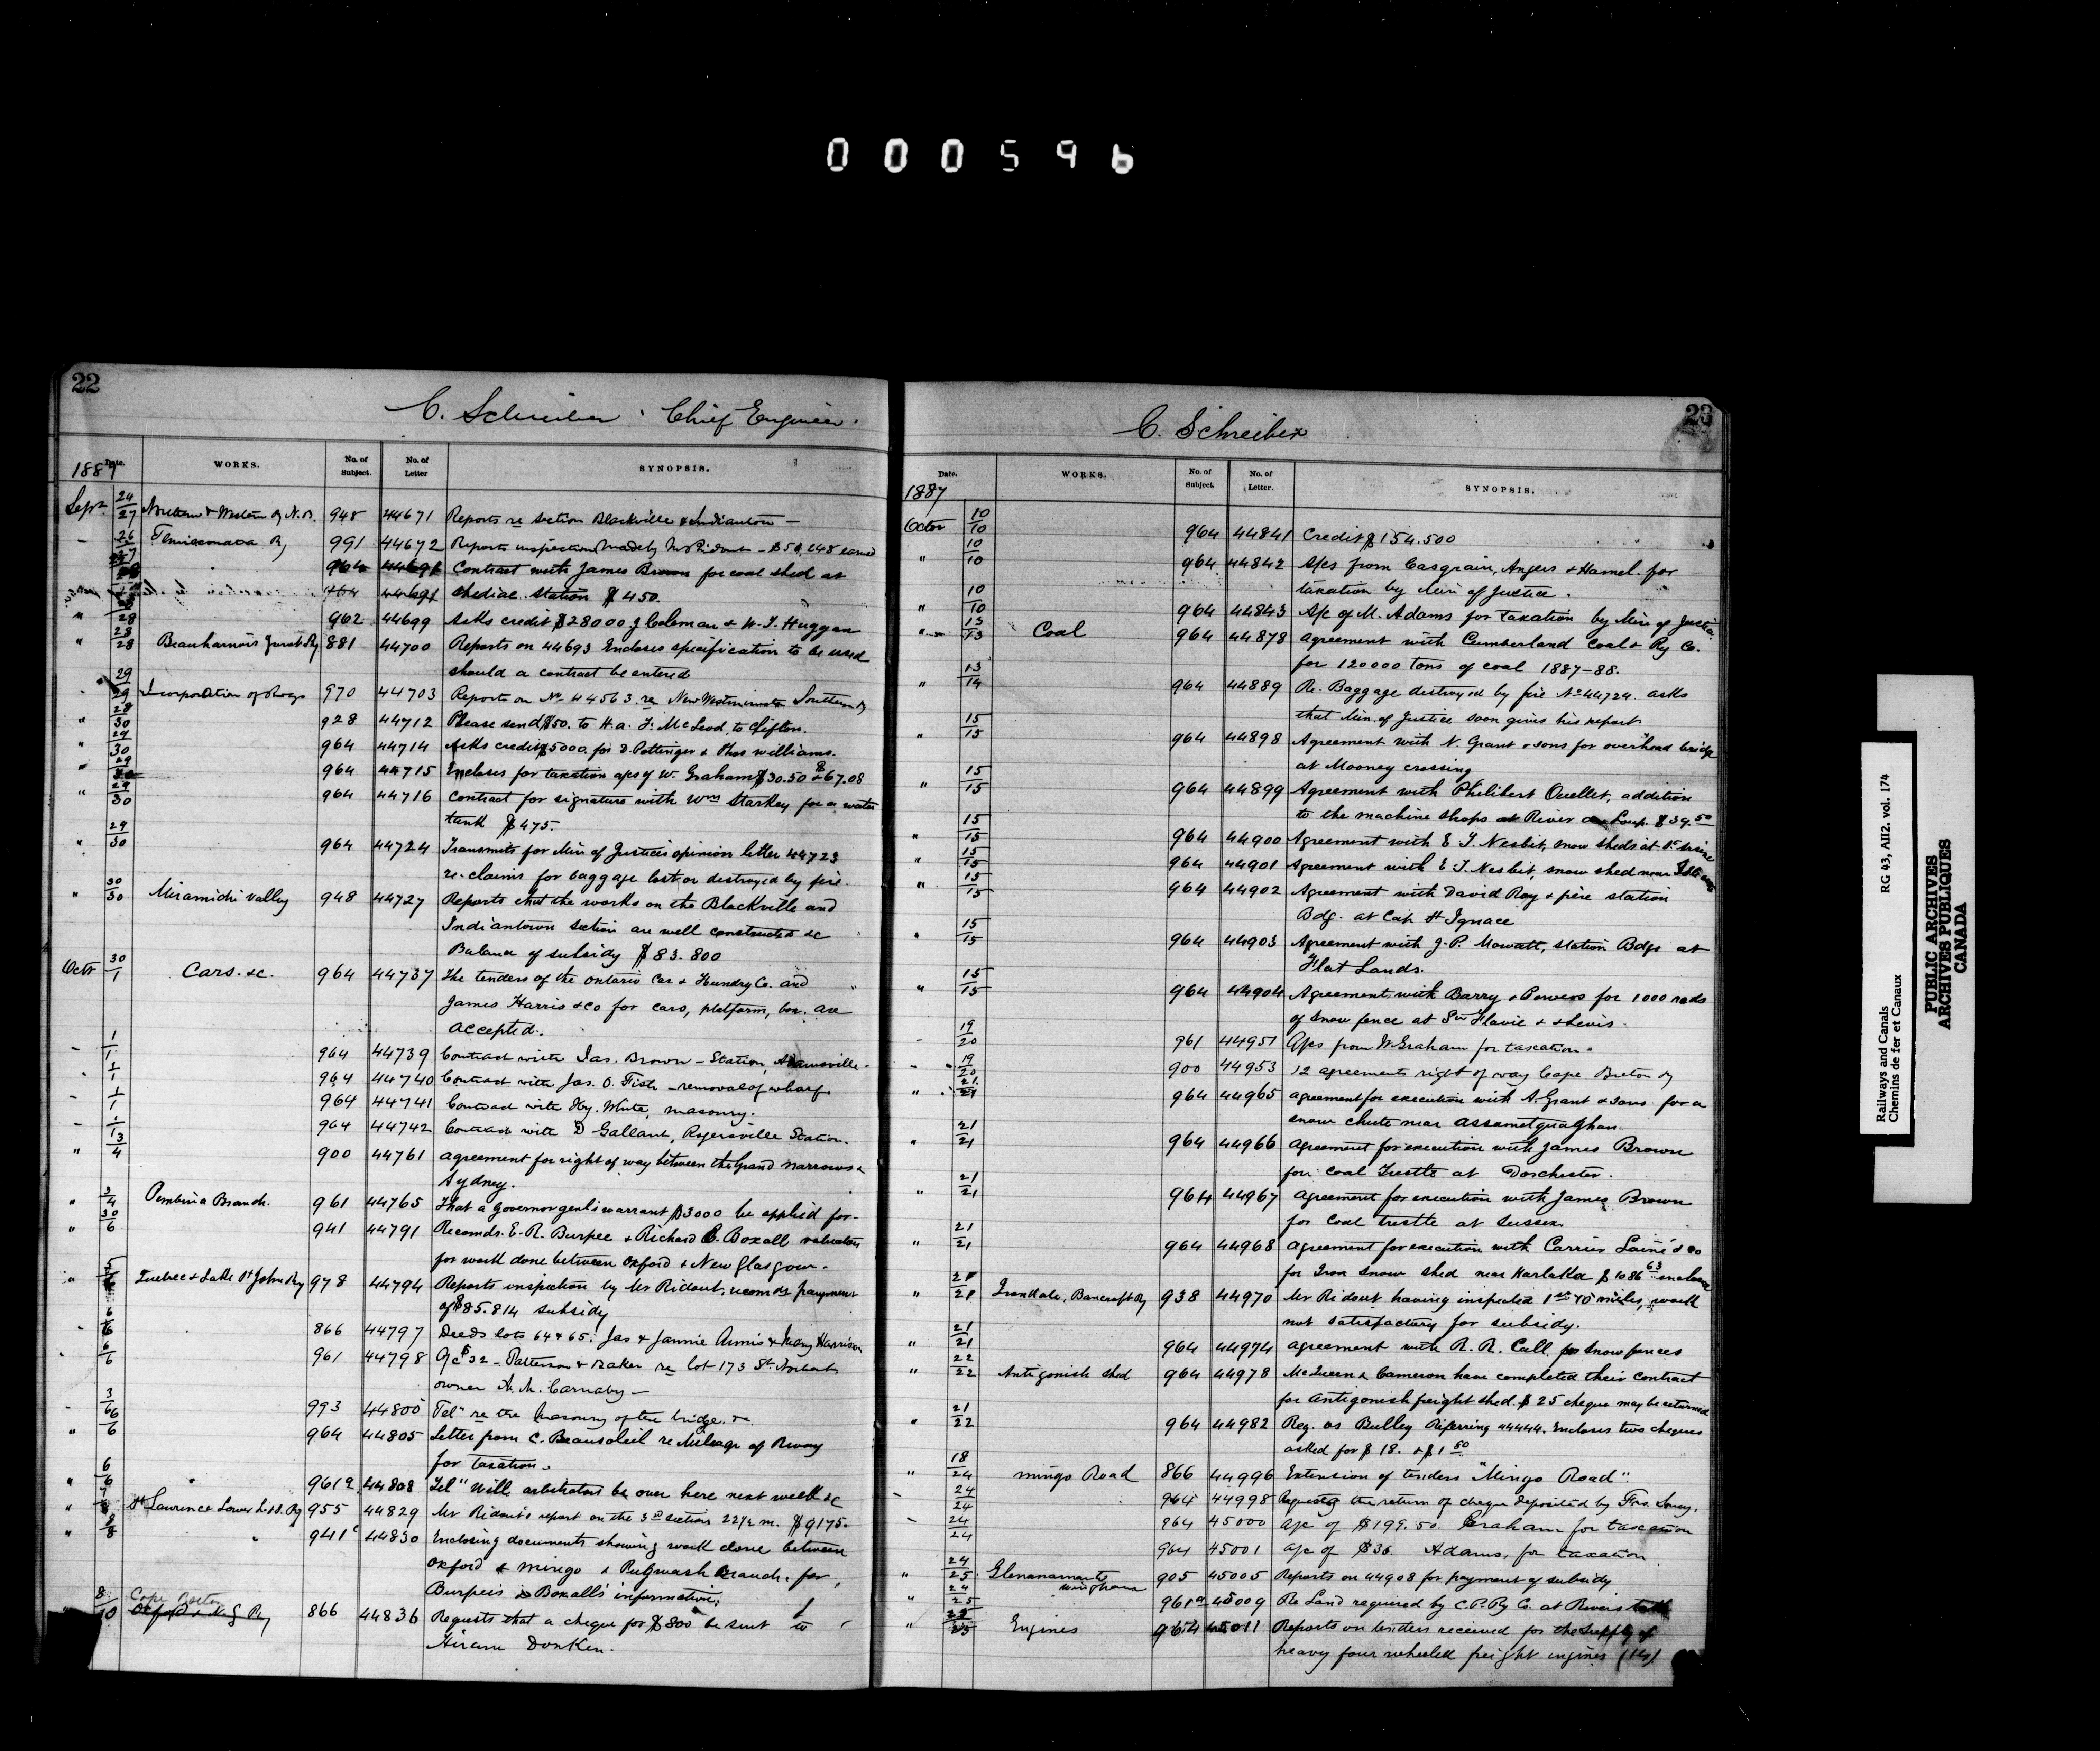 000596
22
C. Schreiber Chief Engineer.
1887 Date. WORKS. No. of Subject. No. of Letter SYNOPSIS.
Sept 24/27 Northern & Western Ry N.B. 948 44671 Reports re section Blackville & Indiantown —
26/27 991 44672 Reports inspection made by Mr Ridout — $50,248 earned
964 44691 Contract with James Brown for coal shed at
Shediac station $450.
" 28/28 962 44699 Asks credit $28000 J Coleman & W. J. Huggan
" 28/28 Beauharnois Junct Ry 881 44700 Reports on 44693 Encloses specification to be used
should a contract be entered
29/29 Incorporation of 970 44703 Reports on No 44563 re New Westminster Southern Ry
" 28/30 928 44712 Please send $50. to H. a. F. McLeod to Clifton.
" 29/30 964 44714 Asks credit $5000. for D. Pottinger & Thos Williams.
" 29/30 964 44715 Encloses for taxation a/cs of W. Graham $30.50 & $67.08
" 29/30 964 44716 Contract for signature with Wm Starkey for a water
tank $475.
" 29/30 964 44724 Transmits for Min of Justice's opinion letter 44723
re claims for baggage lost or destroyed by fire.
" 30/30 Miramichi Valley 948 44727 Reports that the works on the Blackville and
Indiantown section are well constructed &c
Balance of subsidy $83.800
Octr 30/1 Cars. &c. 964 44737 The tenders of the Ontario Car & Foundry Co. and
James Harris & Co for cars, platform, box. are
accepted.
- 1/1 964 44739 Contract with Jas. Brown — Station, Adamsville.
1/1 964 44740 Contract with Jas. O. Fish — removal of wharf.
- 1/1 964 44741 Contract with Hy. White, masonry.
- 1/1 964 44742 Contract with D Gallant, Rogersville Station.
" 3/4 900 44761 agreement for right of way between the Grand Narrows &
Sydney.
" 3/4 Pembina Branch. 961 44765 That a governor genl's warrant $3000 be applied for.
" 30/6 941 44791 Recomds. E. R. Burpee & Richard C. Boxall valuators
for work done between Oxford & New Glasgow.
" 5/6 Quebec & Lake St John Ry 978 44794 Reports inspection by Mr Ridout, recomds payment
of $85.814 subsidy
6/6 866 44797 Deeds lots 64 & 65: Jas & Jannie Armis & Mary Harrison
6/6 961 44798 a/c $32 — Patterson & Baker re lot 173 St. Norbert
owner A. M. Carnaby —
- 3/6 993 44800 Tel" re the masonry of the bridge. &c.
" 6/6 964 44805 Letter from C. Beausoleil re Mileage of Rway
for taxation.
" 6/6 961a 44808 Tel" Will arbitrators be over here next week &c
" St Lawrence Lower Ry 955 44829 Mr Ridout's report on the 3rd section 22½ m. $9175.
" 941c 44830 Enclosing documents showing work done between
Oxford & Mingo & Pugwash Branch. for
Burpee's & Boxall's information.
8/10 Cape Breton Ry 866 44836 Requests that a cheque for $800 be sent to
Hiram Donken.
23
C. Schreiber
1887 Date. WORKS. No. of Subject. No. of Letter. SYNOPSIS.
Octor 10/10 964 44841 Credit $154.500
" 10/10 964 44842 A/cs from Casgrain, Angers & Hamel. for
taxation by Min of Justice.
" 10/10 964 44843 A/c of M. Adams for taxation by Min of Justice
" 13/13 Coal 964 44878 agreement with Cumberland Coal & Ry Co.
for 120000 tons of coal 1887-88.
" 13/14 964 44889 Re. Baggage destroyed by fire No 44724. asks
that Min. of Justice soon gives his report
" 15/15 964 44898 Agreement with N. Grant & sons for overhead bridge
at Mooney crossing
" 15/15 964 44899 Agreement with Philibert Ouellet, addition
to the machine shops at River du Loup. $39.50
" 15/15 964 44900 Agreement with E. J. Nesbit, snow sheds at
" 15/15 964 44901 Agreement with E J. Nesbit, snow shed near
" 15/15 964 44902 Agreement with David Roy & père station
Bdg. at Cap St Ignace
" 15/15 964 44903 Agreement with J. P. Mowatt, station Bdgs at
Flat Lands.
" 15/15 964 44904 Agreement with Barry & Powers for 1000 rods
of snow fence at Ste Flavie &
- 19/20 961 44951 A/cs from W. Graham for taxation.
19/20 900 44953 12 agreements right of way Cape Breton Ry
" 21/21 964 44965 agreement for execution with A. Grant & sons for a
snow chute near Assametquaghan
" 21/21 964 44966 agreement for execution with James Brown
for Coal Trestle at Dorchester.
" 21/21 964 44967 agreement for execution with James Brown
for Coal trestle at Sussex.
" 21/21 964 44968 agreement for execution with Carrier Lainé & Co
for Iron snow shed near Harlaka $1086 63 enclosed
" 21/21 Irondale, Bancroft Ry 938 44970 Mr Ridout having inspected 1st 10 miles, work
not satisfactory for subsidy.
" 21/21 964 44974 agreement with R. R. Call for snow fences
" 22/22 Antigonish shed 964 44978 McQueen & Cameron have completed their contract
for Antigonish freight shed. $25 cheque may be returned
" 21/22 964 44982 Reg. as Bulley Referring 44444. Encloses two cheques
asked for $18. & $1 50
" 18/24 Mingo Road 866 44996 Extension of tenders "Mingo Road".
- 24/24 964 44998 Requests the return of cheque deposited by
- 24/24 964 45000 a/c of $199.50. Graham for taxation
964 45001 a/c of $36. Adams, for taxation
" 24/25 905 45005 Reports on 44908 for payment of subsidy
" 24/25 961a 45009 Re Land required by C.P. Ry Co. at
" Engines 964 45011 Reports on tenders received for the supply of
heavy four wheeled freight engines (14)
Railways and Canals RG 43, AII2. vol. 174
Chemins de fer et Canaux
PUBLIC ARCHIVES
ARCHIVES PUBLIQUES
CANADA